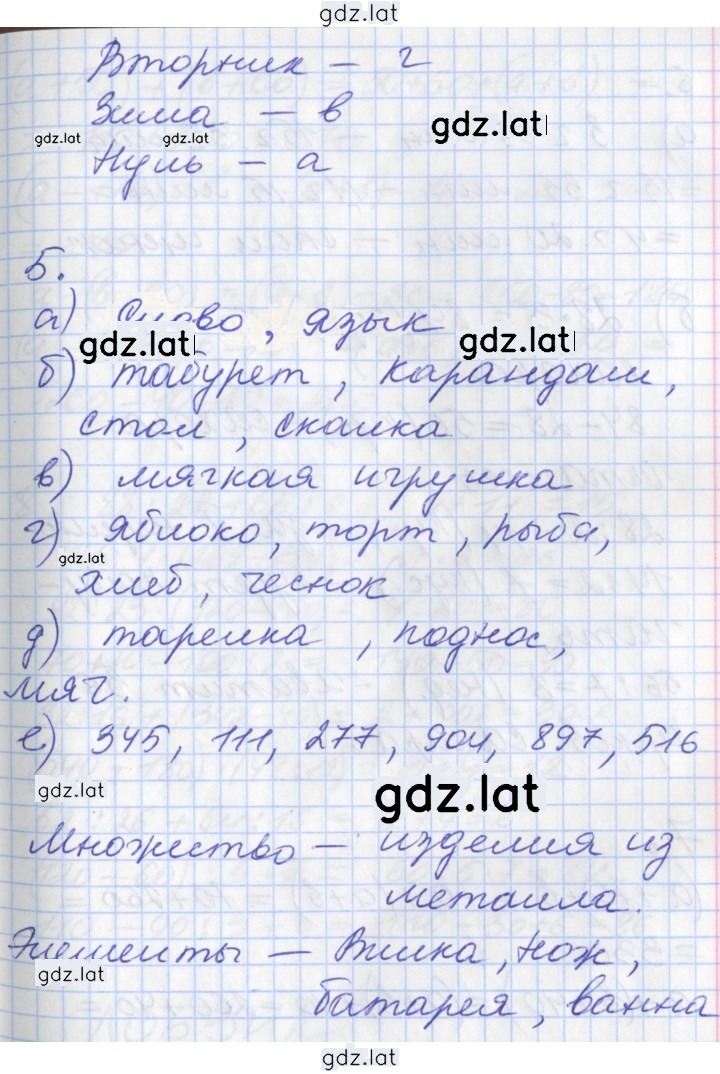 gdz.lat
Вторник – г
Зима – в
gdz.lat
gdz.lat gdz.lat
Нуль – а
5.
а) Слово, язык
gdz.lat gdz.lat
б) табурет, карандаш,
стол, скалка
в) мягкая игрушка
г) яблоко, торт, рыба,
gdz.lat
хлеб, чеснок
д) тарелка, поднос,
мяч.
е) 345, 111, 277, 904, 897, 516
gdz.lat gdz.lat
Множество – изделия из
металла.
Элементы – Вилка, нож,
gdz.lat
батарея, ванна
gdz.lat